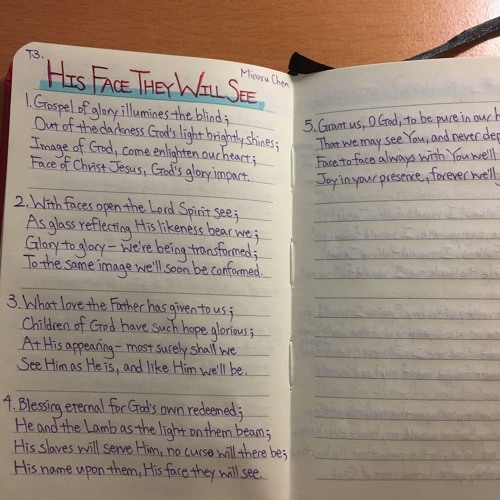 T3.
Minoru Chen
HIS FACE THEY WILL SEE
1. Gospel of glory illumines the blind;
Out of the darkness God's light brightly shines;
Image of God, come enlighten our heart;
Face of Christ Jesus, God's glory impart.
2. With faces open the Lord Spirit see;
As glass reflecting His likeness bear we;
Glory to glory – we're being transformed;
To the same image we'll soon be conformed.
3. What love the Father has given to us;
Children of God have such hope glorious;
At His appearing – most surely shall we
See Him as He is, and like Him we'll be.
4. Blessing eternal for God's own redeemed;
He and the Lamb as the light on them beam;
His slaves will serve Him, no curse will there be;
His name upon them, His face they will see.
5. Grant us, O God, to be pure in our h
That we may see You, and never dep
Face to face always with You we'll
Joy in your presence, forever we'll